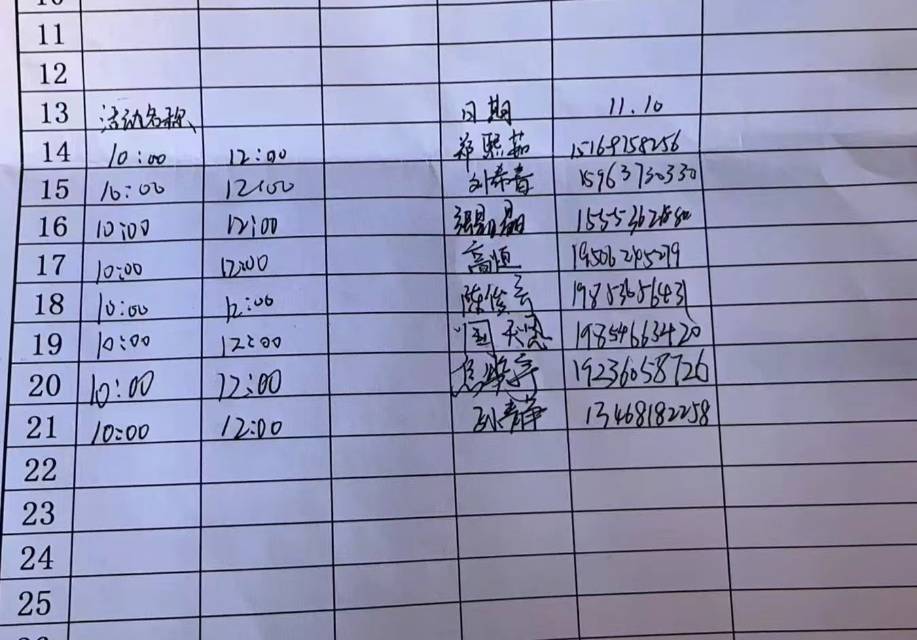 11
12
13 活动名称 日期 11.10
14 10:00 12:00 郑熙茹 15168758256
15 10:00 12:00 刘希春 15963730330
16 10:00 12:00
17 10:00 12:00 高恒 19506245279
18 10:00 12:00 陈俊宇 19853656431
19 10:00 12:00 19854663420
20 10:00 12:00 19236058726
21 10:00 12:00 孙静 13468182258
22
23
24
25